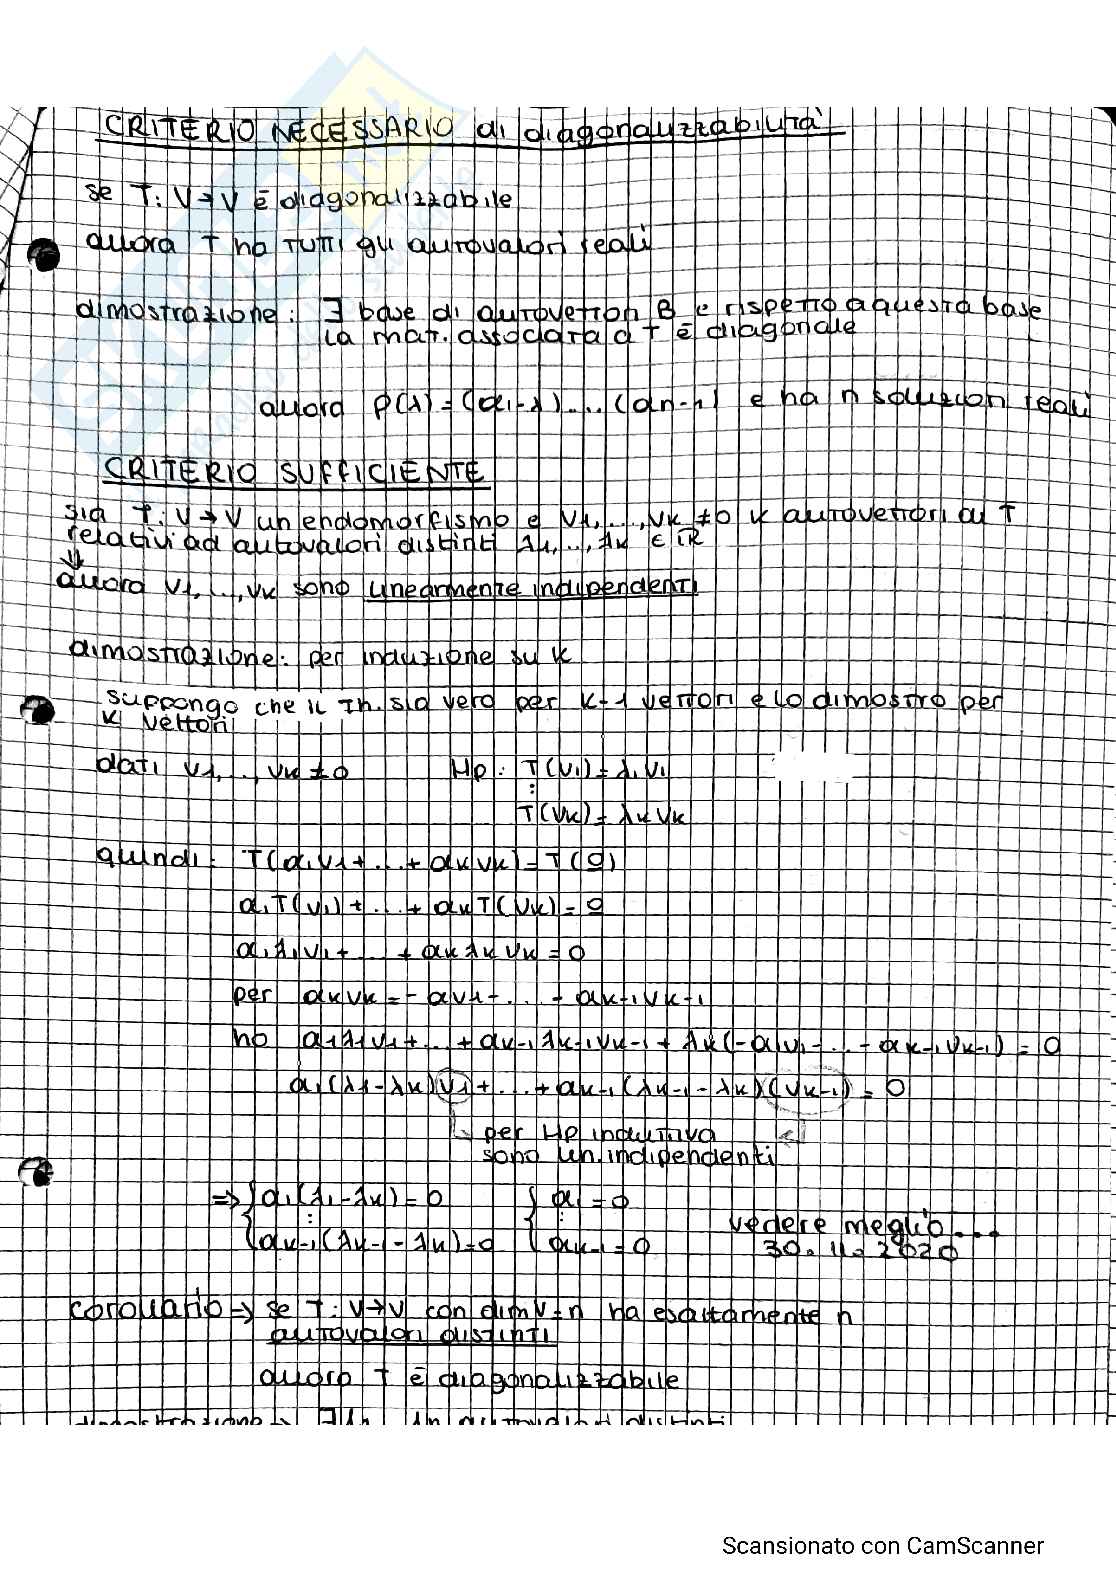 CRITERIO NECESSARIO di diagonalizzabilità
se T: V→V è diagonalizzabile
allora T ha TUTTI gli autovalori reali
dimostrazione: ∃ base di autovettori B e rispetto a questa base
la mat. associata a T è diagonale
allora P(λ)=(α1-λ)....(αn-λ) e ha n soluzioni reali
CRITERIO SUFFICIENTE
sia T: V→V un endomorfismo e v1,...,vk ≠0 k autovettori di T
relativi ad autovalori distinti λ1,..,λk ∈ℝ
⇓
allora v1,...,vk sono linearmente indipendenti
dimostrazione: per induzione su k
suppongo che il Th. sia vero per k-1 vettori e lo dimostro per
k vettori
dati v1,...,vk ≠0 Hp: T(v1)=λ1v1
⋮
T(vk)=λkvk
quindi: T(α1v1+...+αkvk)=T(0)
α1T(v1)+...+αkT(vk)=0
α1λ1v1+...+αkλkvk=0
per αkvk=-αv1-...-αk-1vk-1
ho α1λ1v1+...+αk-1λk-1vk-1+λk(-α1v1-...-αk-1vk-1)=0
α1(λ1-λk)v1+...+αk-1(λk-1-λk)(vk-1)=0
per Hp induttiva
sono lin. indipendenti
=> { α1(λ1-λk)=0 { α1=0
⋮ ⋮
αk-1(λk-1-λk)=0 αk-1=0
vedere meglio...
30.11.2020
corollario → se T: V→V con dimV=n ha esattamente n
autovalori distinti
allora T è diagonalizzabile
Scansionato con CamScanner